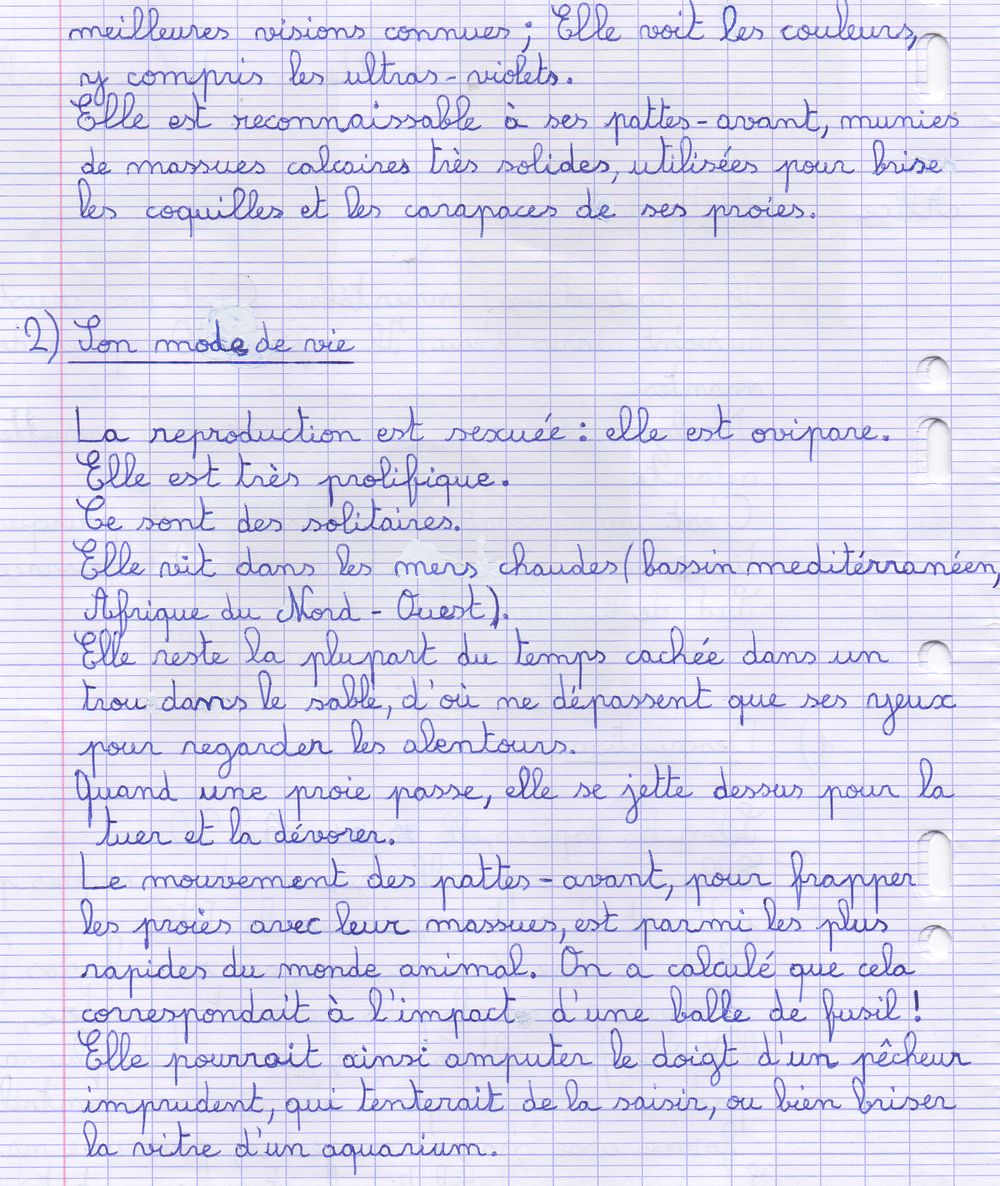 meilleures visions connues ; Elle voit les couleurs,
y compris les ultras-violets.
Elle est reconnaissable à ses pattes-avant, munies
de massues calcaires très solides, utilisées pour brise
les coquilles et les carapaces de ses proies.
2) Son mode de vie
La reproduction est sexuée : elle est ovipare.
Elle est très prolifique.
Ce sont des solitaires.
Elle vit dans les mers chaudes (bassin meditérranéen,
Afrique du Nord - Ouest).
Elle reste la plupart du temps cachée dans un
trou dans le sable, d'où ne dépassent que ses yeux
pour regarder les alentours.
Quand une proie passe, elle se jette dessus pour la
tuer et la dévorer.
Le mouvement des pattes-avant, pour frapper
les proies avec leur massues, est parmi les plus
rapides du monde animal. On a calculé que cela
correspondait à l'impact d'une balle de fusil !
Elle pourrait ainsi amputer le doigt d'un pêcheur
imprudent, qui tenterait de la saisir, ou bien briser
la vitre d'un aquarium.